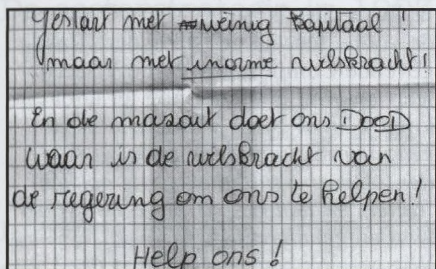 gestart met weinig kapitaal !
maar met enorme wilskracht !
En de mazout doet ons DOOD
waar is de wilskracht van
de regering om ons te helpen !
Help ons !